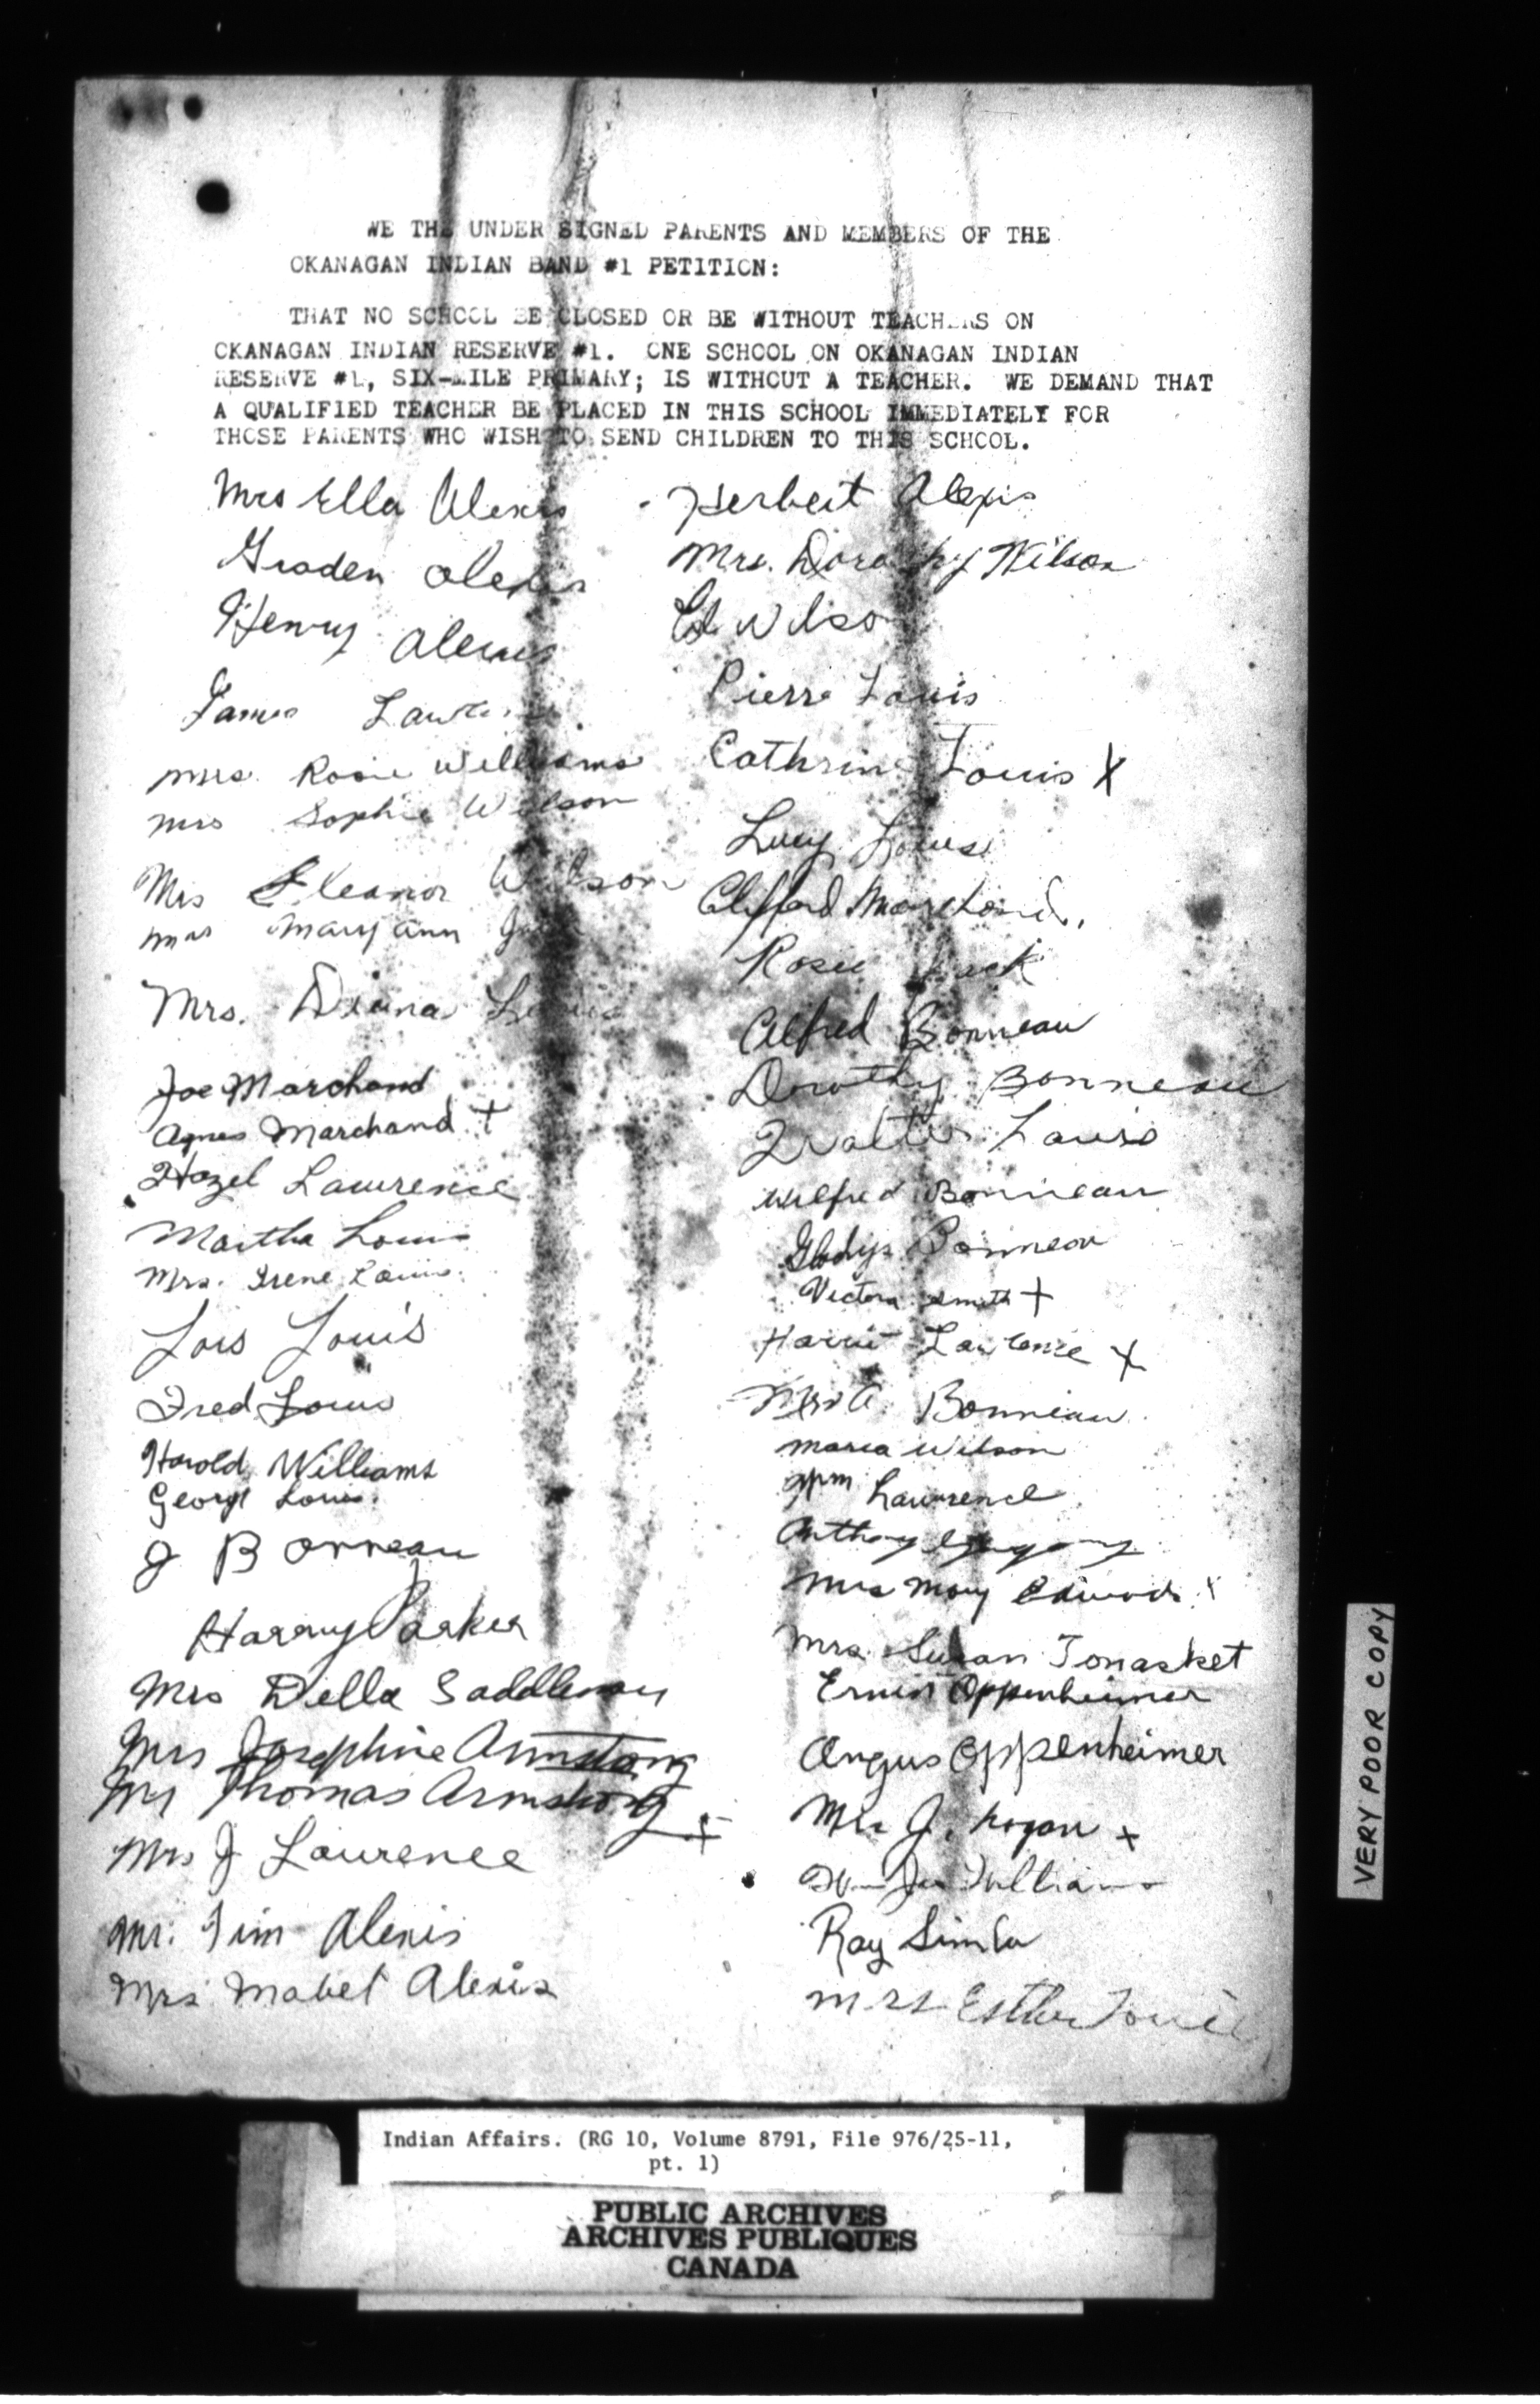 WE THE UNDER SIGNED PARENTS AND MEMBERS OF THE
OKANAGAN INDIAN BAND #1 PETITION:
THAT NO SCHOOL BE CLOSED OR BE WITHOUT TEACHERS ON
OKANAGAN INDIAN RESERVE #1. ONE SCHOOL ON OKANAGAN INDIAN
RESERVE #1, SIX-MILE PRIMARY; IS WITHOUT A TEACHER. WE DEMAND THAT
A QUALIFIED TEACHER BE PLACED IN THIS SCHOOL IMMEDIATELY FOR
THOSE PARENTS WHO WISH TO SEND CHILDREN TO THIS SCHOOL.
Mrs Ella Alexis
Alexis
Henry Alexis
James
Mrs. Rosie Williams
Mrs Sophie Wilson
Mrs Eleanor Wilson
Mrs Mary Ann
Mrs. Diana
Joe Marchand
Agnes Marchand +
Hazel Lawrence
Martha Louis
Mrs. Irene Louis
Lois Louis
Fred Louis
Harold Williams
George Louis
J Bonneau
Harry Parker
Mrs Della Saddleman
Mrs Josephine Armstong
Mr Thomas Armstrong
Mrs J Laurence +
Mr. Tim Alexis
Mrs Mabel Alexis
Herbert Alexis
Mrs. Dorothy Wilson
Ed Wilson
Pierre Louis
Cathrine Louis X
Lucy Louise
Clifford Marchand.
Rosie Jack
Alfred Bonneau
Dorothy Bonneau
Walter Louis
Wilfred Bonneau
Gladys Bonneau
Victoria Smith +
Lawrence X
Mrs A. Bonneau
Maria Wilson
Lawrence
Anthony
Mrs Mary Edwards X
Mrs. Susan Tonasket
Ernest Oppenheimer
Angus Oppenheimer
Mrs J. Logan x
Williams
Ray Simla
Mrs Esther Louie
VERY POOR COPY
Indian Affairs. (RG 10, Volume 8791, File 976/25-11,
pt. 1)
PUBLIC ARCHIVES
ARCHIVES PUBLIQUES
CANADA